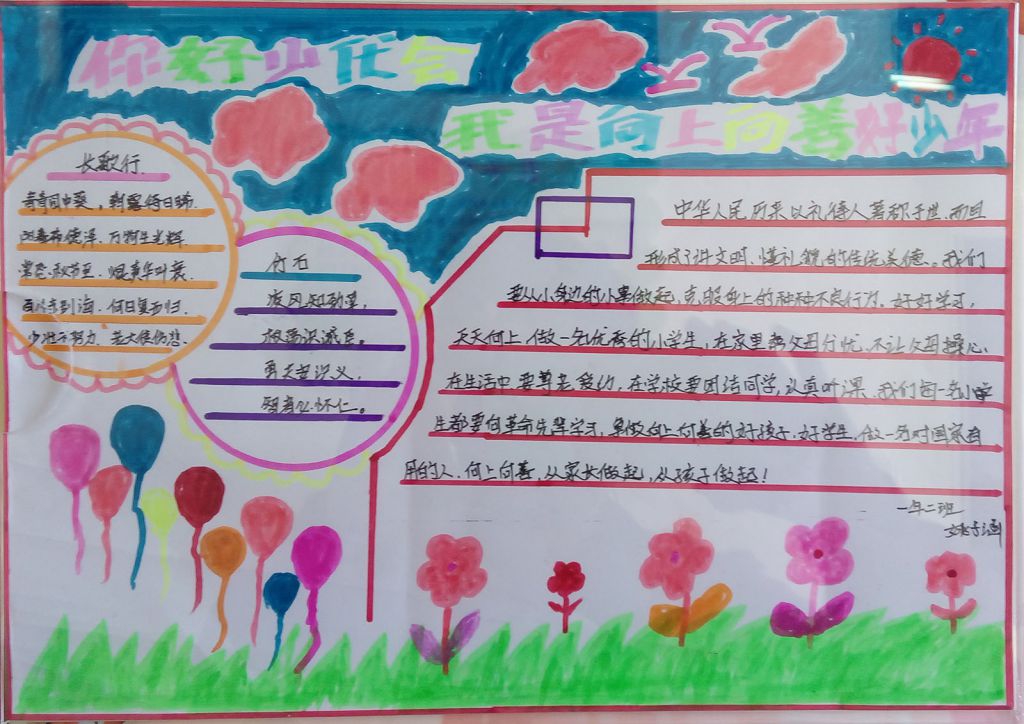 你好少代会
天天
我是向上向善好少年
长歌行
青青园中葵，朝露待日晞.
阳春布德泽、万物生光辉.
常恐秋节至.焜黄华叶衰.
百川东到海.何日复西归.
少壮不努力.老大徒伤悲.
竹石
疾风知劲草，
板荡识诚臣。
勇夫安识义，
智者必怀仁。
中华人民历来以礼待人著称于世.而且
形成了讲文明、懂礼貌的传统美德。我们
要从小身边的小事做起，克服身上的种种不良行为，好好学习，
天天向上.做一名优秀的小学生，在家里为父母分忧.不让父母操心.
在生活中要尊老爱幼，在学校要团结同学，认真听课.我们每一名小学
生都要向革命先辈学习，争做向上向善的好孩子.好学生.做一名对国家有
用的人.向上向善，从家长做起，从孩子做起！
一年二班
姚子涵